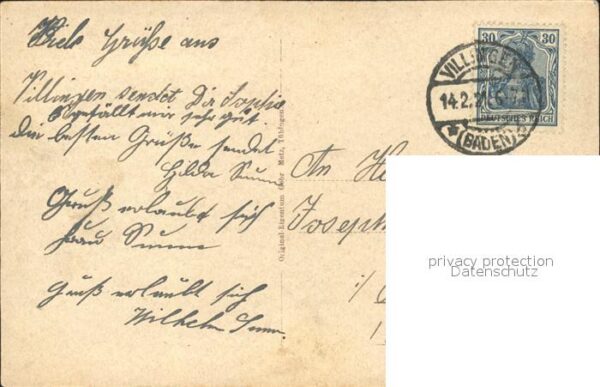 Viele Grüße aus
Villingen sendet Dir Sophie
Es gefällt mir sehr gut
die besten Grüße sendet
Hilda
Gruß erlaubt sich
Frau
Gruß erlaubt sich
Wilhelm
Original-Eigentum Gebr. Metz, Tübingen
30 30
DEUTSCHES REICH
VILLINGEN
14.2.21
(BADEN)
An
Joseph
privacy protection
Datenschutz